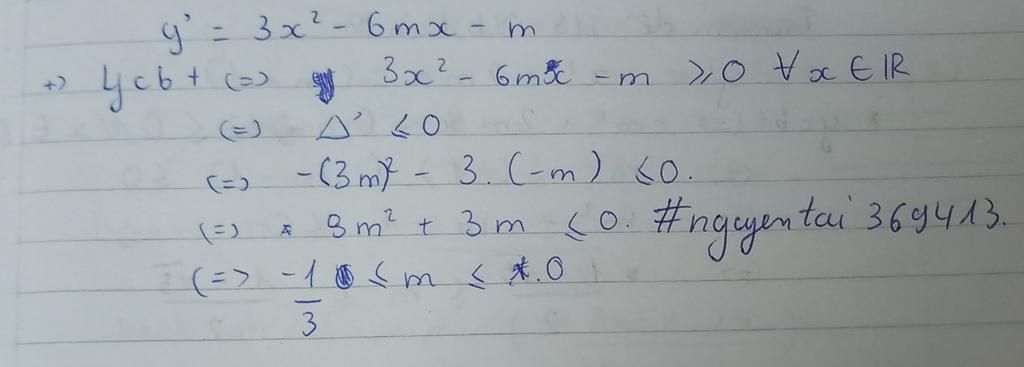 y' = 3x² - 6mx - m
+) ycbt <=> 3x² - 6mx - m ≥ 0 ∀x ∈ ℝ
<=> Δ' ≤ 0
<=> -(3m)² - 3.(-m) ≤ 0.
<=> 9m² + 3m ≤ 0. #nguyentai369413.
<=> -1/3 ≤ m ≤ 0